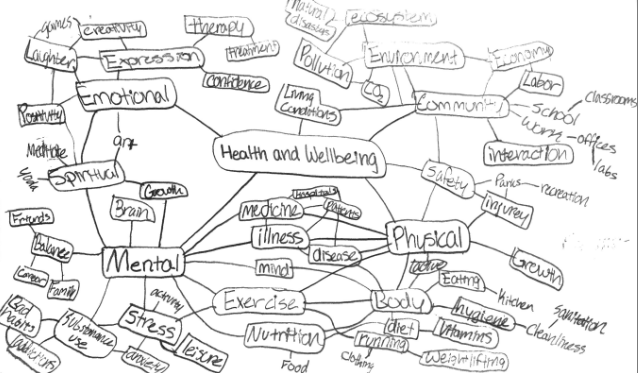 games
creativity
therapy
natural
disasters
ecosystem
Laughter
Expression
treatment
Environment
Economy
Pollution
confidence
CO2
Labor
Emotional
Living
conditions
Community
classrooms
School
Positivity
Work
offices
labs
art
interaction
Meditate
Health and Wellbeing
Yoga
Spiritual
Safety
Parks
recreation
Growth
Hospitals
injury
Brain
medicine
Patients
Friends
illness
Physical
Balance
disease
Growth
Mental
mind
active
Career
Family
Eating
activity
Exercise
Body
Kitchen
Bad
habits
Substance
use
Stress
hygiene
sanitation
cleanliness
Nutrition
diet
Vitamins
addictions
anxiety
leisure
running
Food
clothing
Weightlifting